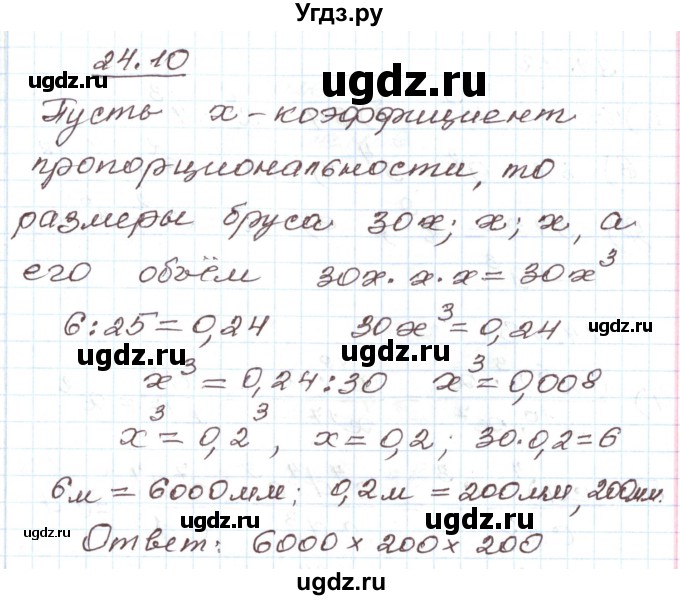 Угдз.ру
24.10
ugdz.ru ugdz.ru ugdz.ru
Пусть x - коэффициент
пропорциональности, то
размеры бруса 30x; x; x, а
ugdz.ru ugdz.ru
его объём 30x · x · x = 30x³
6 : 25 = 0,24 30x³ = 0,24 ugdz.ru
ugdz.ru ugdz.ru
x³ = 0,24 : 30 x³ = 0,008
x³ = 0,2³, x = 0,2; 30 · 0,2 = 6
6м = 6000мм; 0,2м = 200мм, 200мм.
ugdz.ru ugdz.ru ugdz.ru
Ответ: 6000 × 200 × 200
ugdz.ru